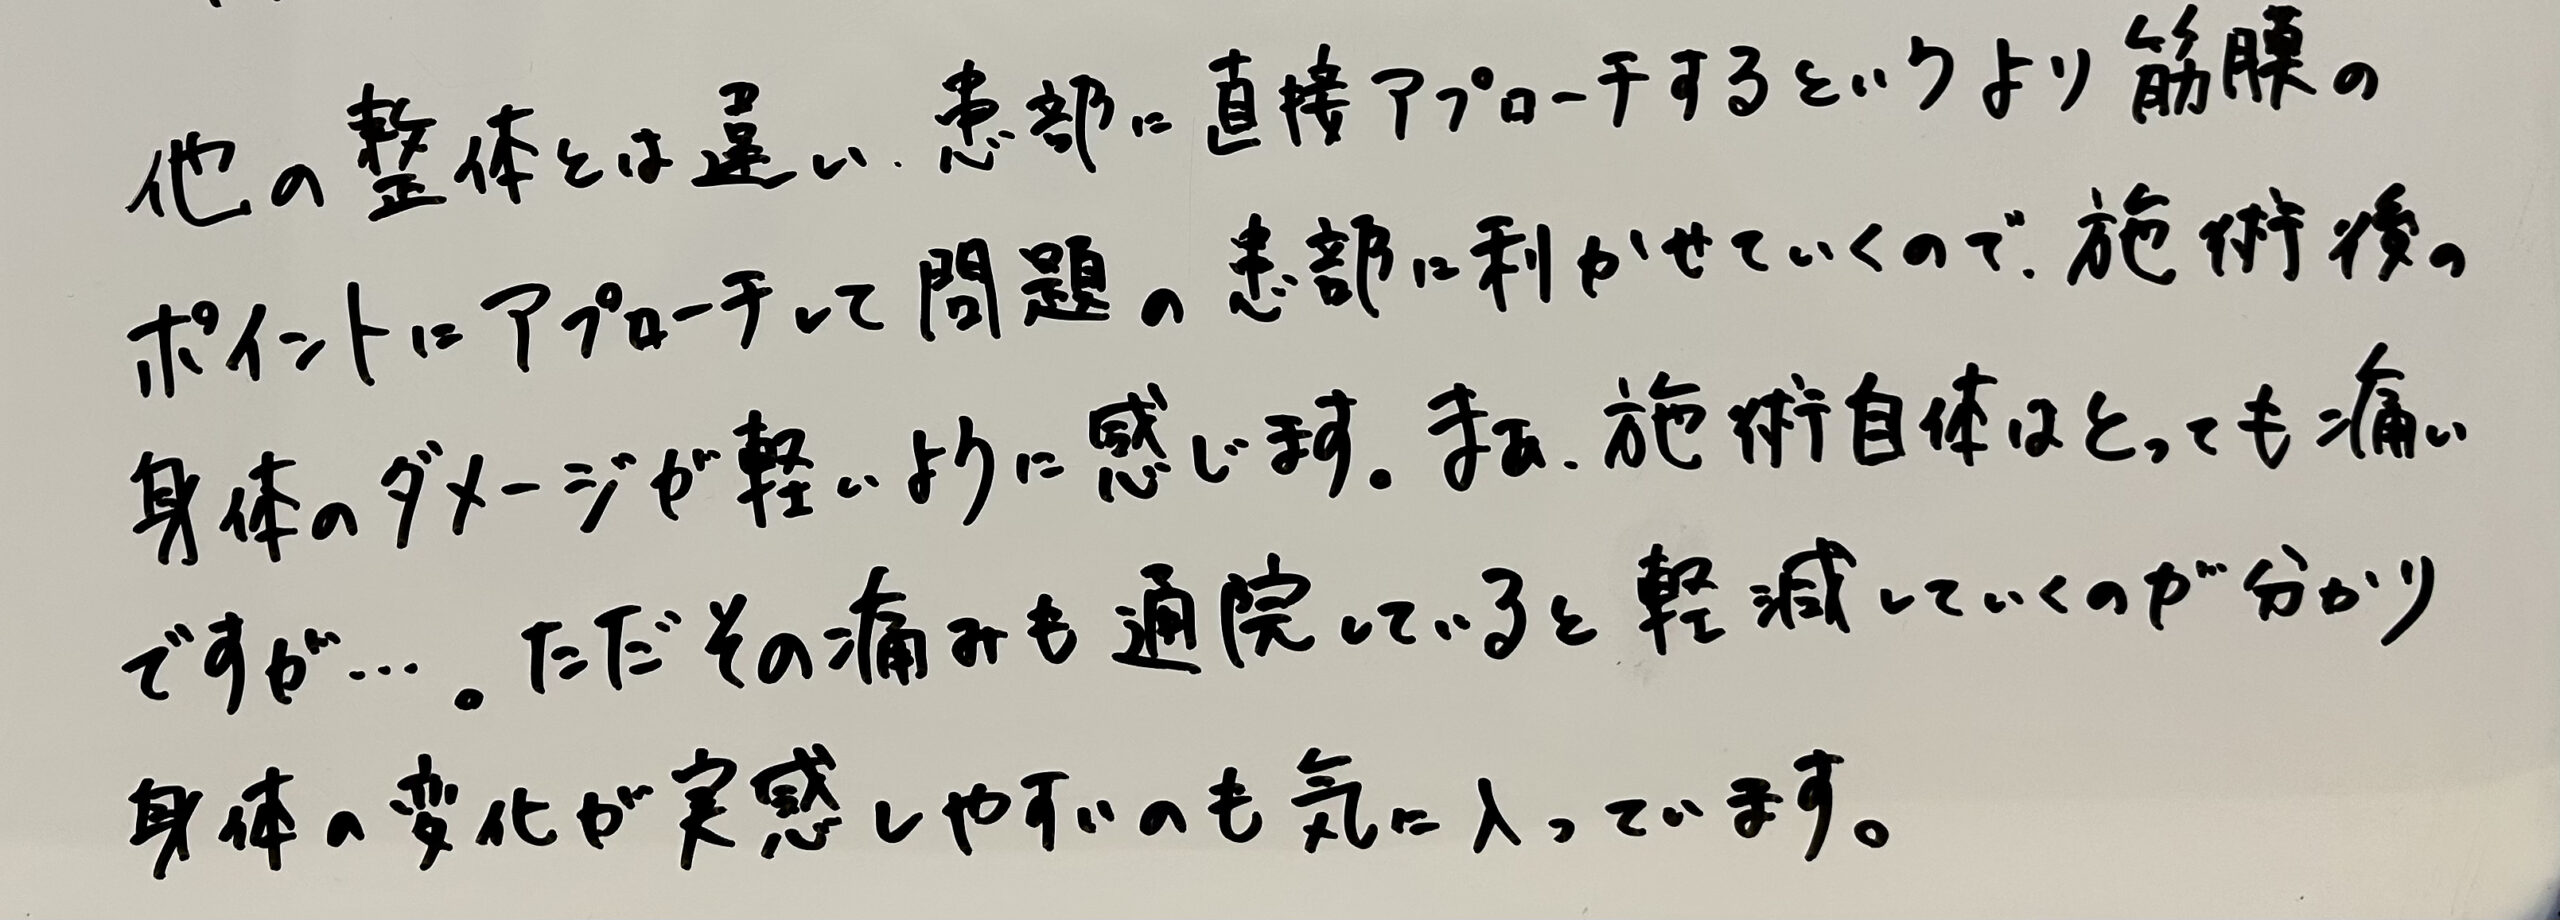 他の整体とは違い、患部に直接アプローチするというより筋膜の
ポイントにアプローチして問題の患部に利かせていくので、施術後の
身体のダメージが軽いように感じます。まぁ、施術自体はとっても痛い
ですが…。ただその痛みも通院していると軽減していくのが分かり
身体の変化が実感しやすいのも気に入っています。